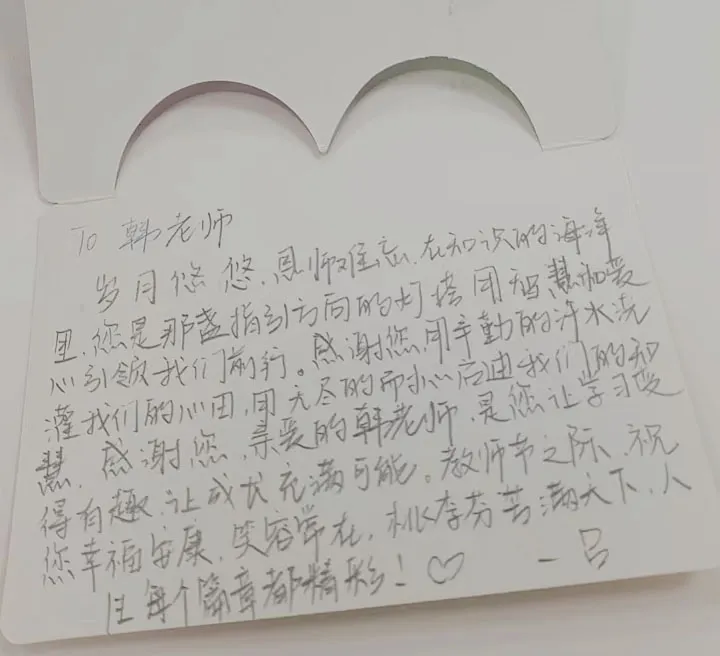 To 韩老师
岁月悠悠，恩师难忘，在知识的海洋
里，您是那盏指引方向的灯塔，用智慧和爱
心引领我们前行。感谢您用辛勤的汗水浇
灌我们的心田，用无尽的耐心启迪我们的知
慧，感谢您，亲爱的韩老师，是您让学习变
得有趣，让成长充满可能。教师节之际，祝
您幸福安康，笑容常在，桃李芬芳满天下，人
生每个篇章都精彩！♡ 一吕